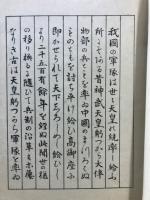 我國の軍隊は世々天皇の統率し給ふ
所にそある昔神武天皇躬つから大伴
物部の兵ともを率ゐ中國のまつろはぬ
ものともを討ち平け給ひ高御座に
即かせられて天下しろしめし給ひし
より二千五百有餘年を經ぬ此間世の樣
の移り換るに隨ひて兵制の沿革も亦屢
なりき古は天皇躬つから軍隊を率ゐ